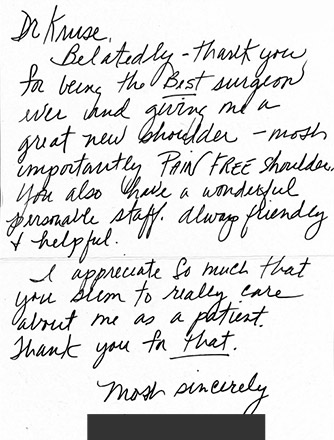 Dr Kruse,
Belatedly - thank you
for being the Best surgeon
ever and giving me a
great new shoulder - most
importantly PAIN FREE shoulder.
You also have a wonderful
personable staff. Always friendly
& helpful.
I appreciate so much that
you seem to really care
about me as a patient.
Thank you for that.
Most sincerely